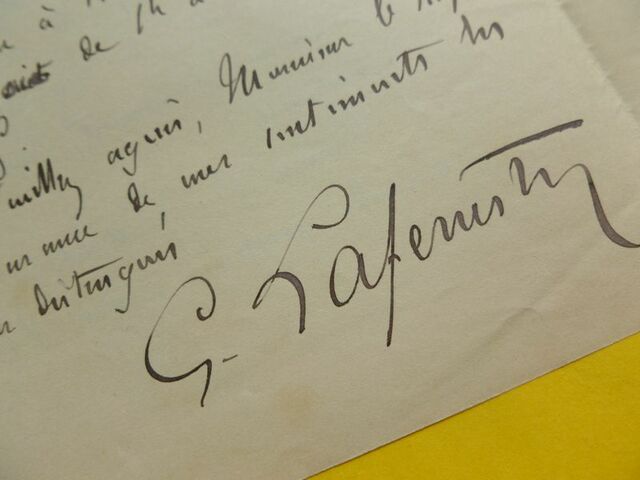 e à
de
Veuillez agréer, Monsieur le
urance de mes sentiments les
distingués
G. Lafenestre